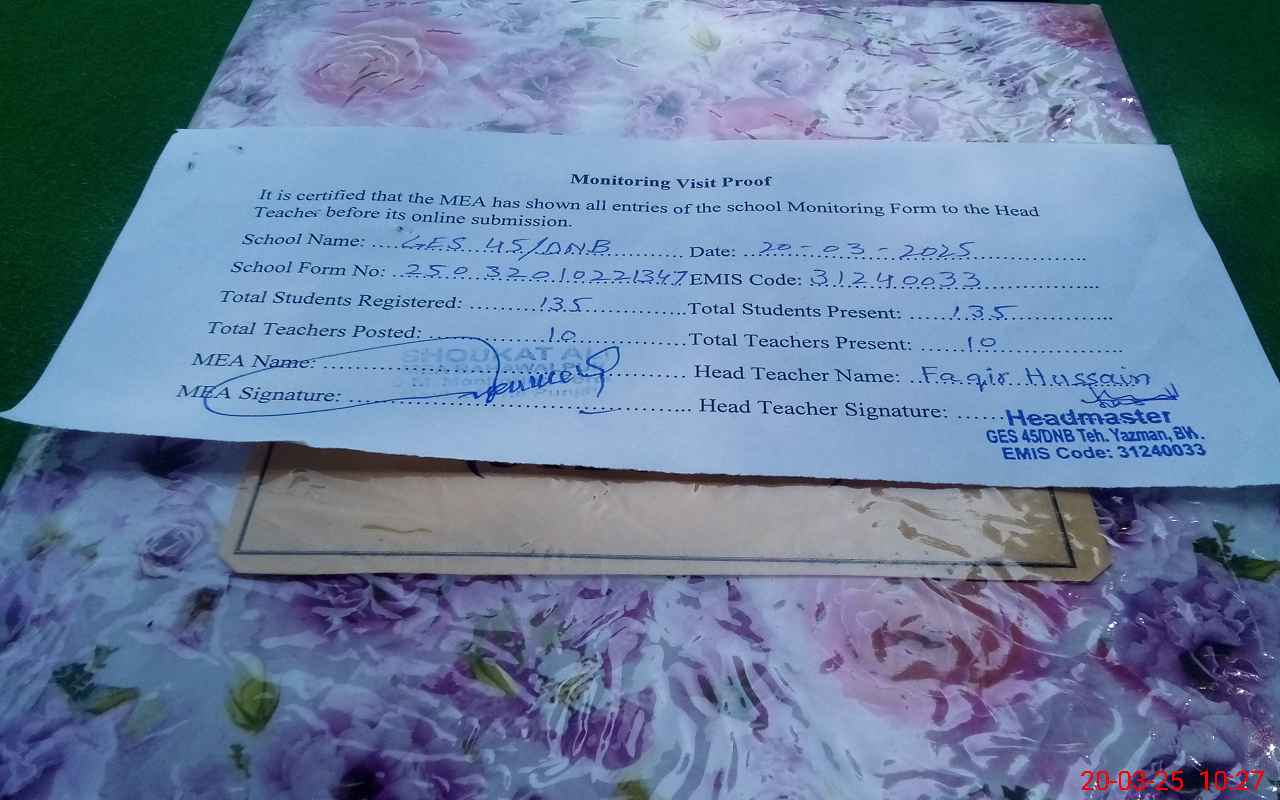 Monitoring Visit Proof
It is certified that the MEA has shown all entries of the school Monitoring Form to the Head
Teacher before its online submission.
School Name: ....GES 45/DNB.......... Date: ..20-03-2025................
School Form No: ..25032010221347 EMIS Code: 31240033................
Total Students Registered: ..........135.............. Total Students Present: ......135..............
Total Teachers Posted: ..................10.................. Total Teachers Present: ......10....................
MEA Name: .................... SHOUKAT ALI .......... Head Teacher Name: ..Faqir Hussain
MEA Signature: ........................................ Head Teacher Signature: ......
Headmaster
GES 45/DNB Teh. Yazman, BW.
EMIS Code: 31240033
20-03-25 10:27